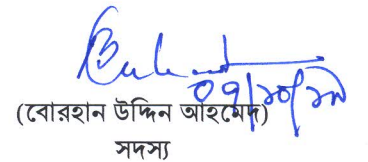 ০৭/১০/১৯
(বোরহান উদ্দিন আহমেদ)
সদস্য